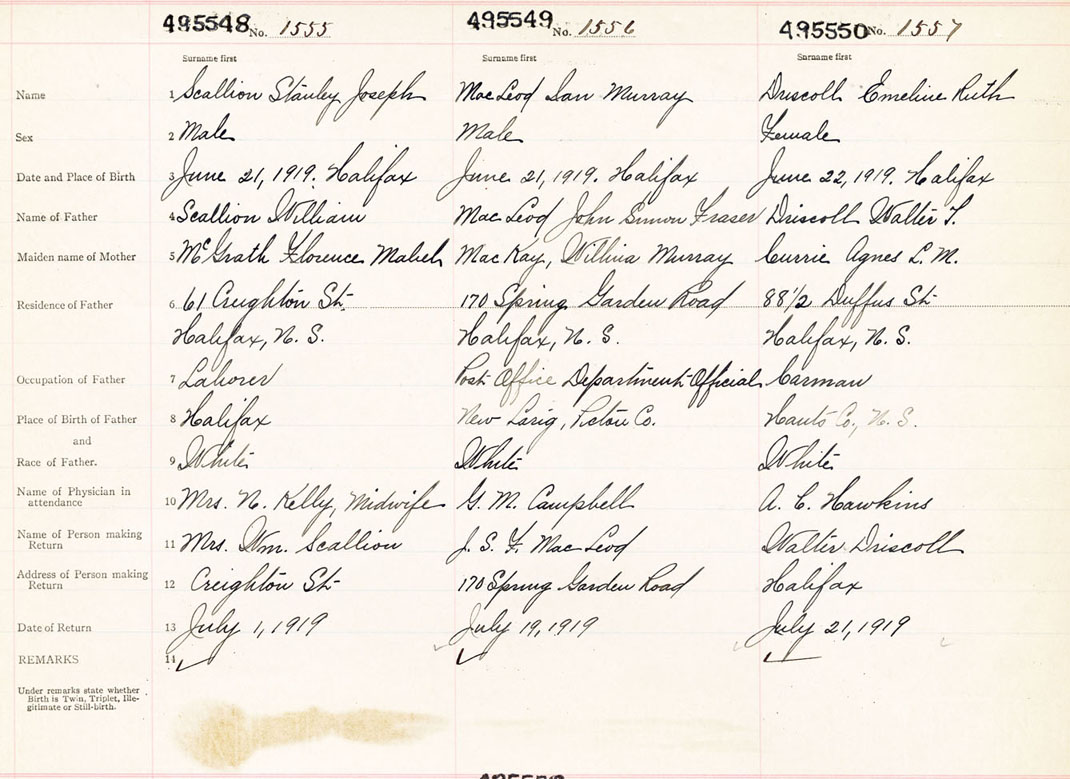 495548 No. 1555 495549 No. 1556 495550 No. 1557
Surname first Surname first Surname first
Name 1 Scallion Stanley Joseph MacLeod Ian Murray Driscoll Emeline Ruth
Sex 2 Male Male Female
Date and Place of Birth 3 June 21, 1919. Halifax June 21, 1919. Halifax June 22, 1919. Halifax
Name of Father 4 Scallion William MacLeod John Simon Fraser Driscoll Walter T.
Maiden name of Mother 5 McGrath Florence Mabel MacKay, Willina Murray Currie Agnes L. M.
Residence of Father 6 61 Creighton St. 170 Spring Garden Road 88 1/2 Duffus St.
Halifax, N. S. Halifax, N. S. Halifax, N. S.
Occupation of Father 7 Laborer Post Office Department Official Carman
Place of Birth of Father 8 Halifax New Larig, Pictou Co. Hants Co., N. S.
and
Race of Father. 9 White White White
Name of Physician in
attendance 10 Mrs. N. Kelly, Midwife G. M. Campbell A. C. Hawkins
Name of Person making
Return 11 Mrs. Wm. Scallion J. S. F. MacLeod Walter Driscoll
Address of Person making
Return 12 Creighton St. 170 Spring Garden Road Halifax
Date of Return 13 July 1, 1919 July 19, 1919 July 21, 1919
REMARKS 14
Under remarks state whether
Birth is Twin, Triplet, Ille-
gitimate or Still-birth.